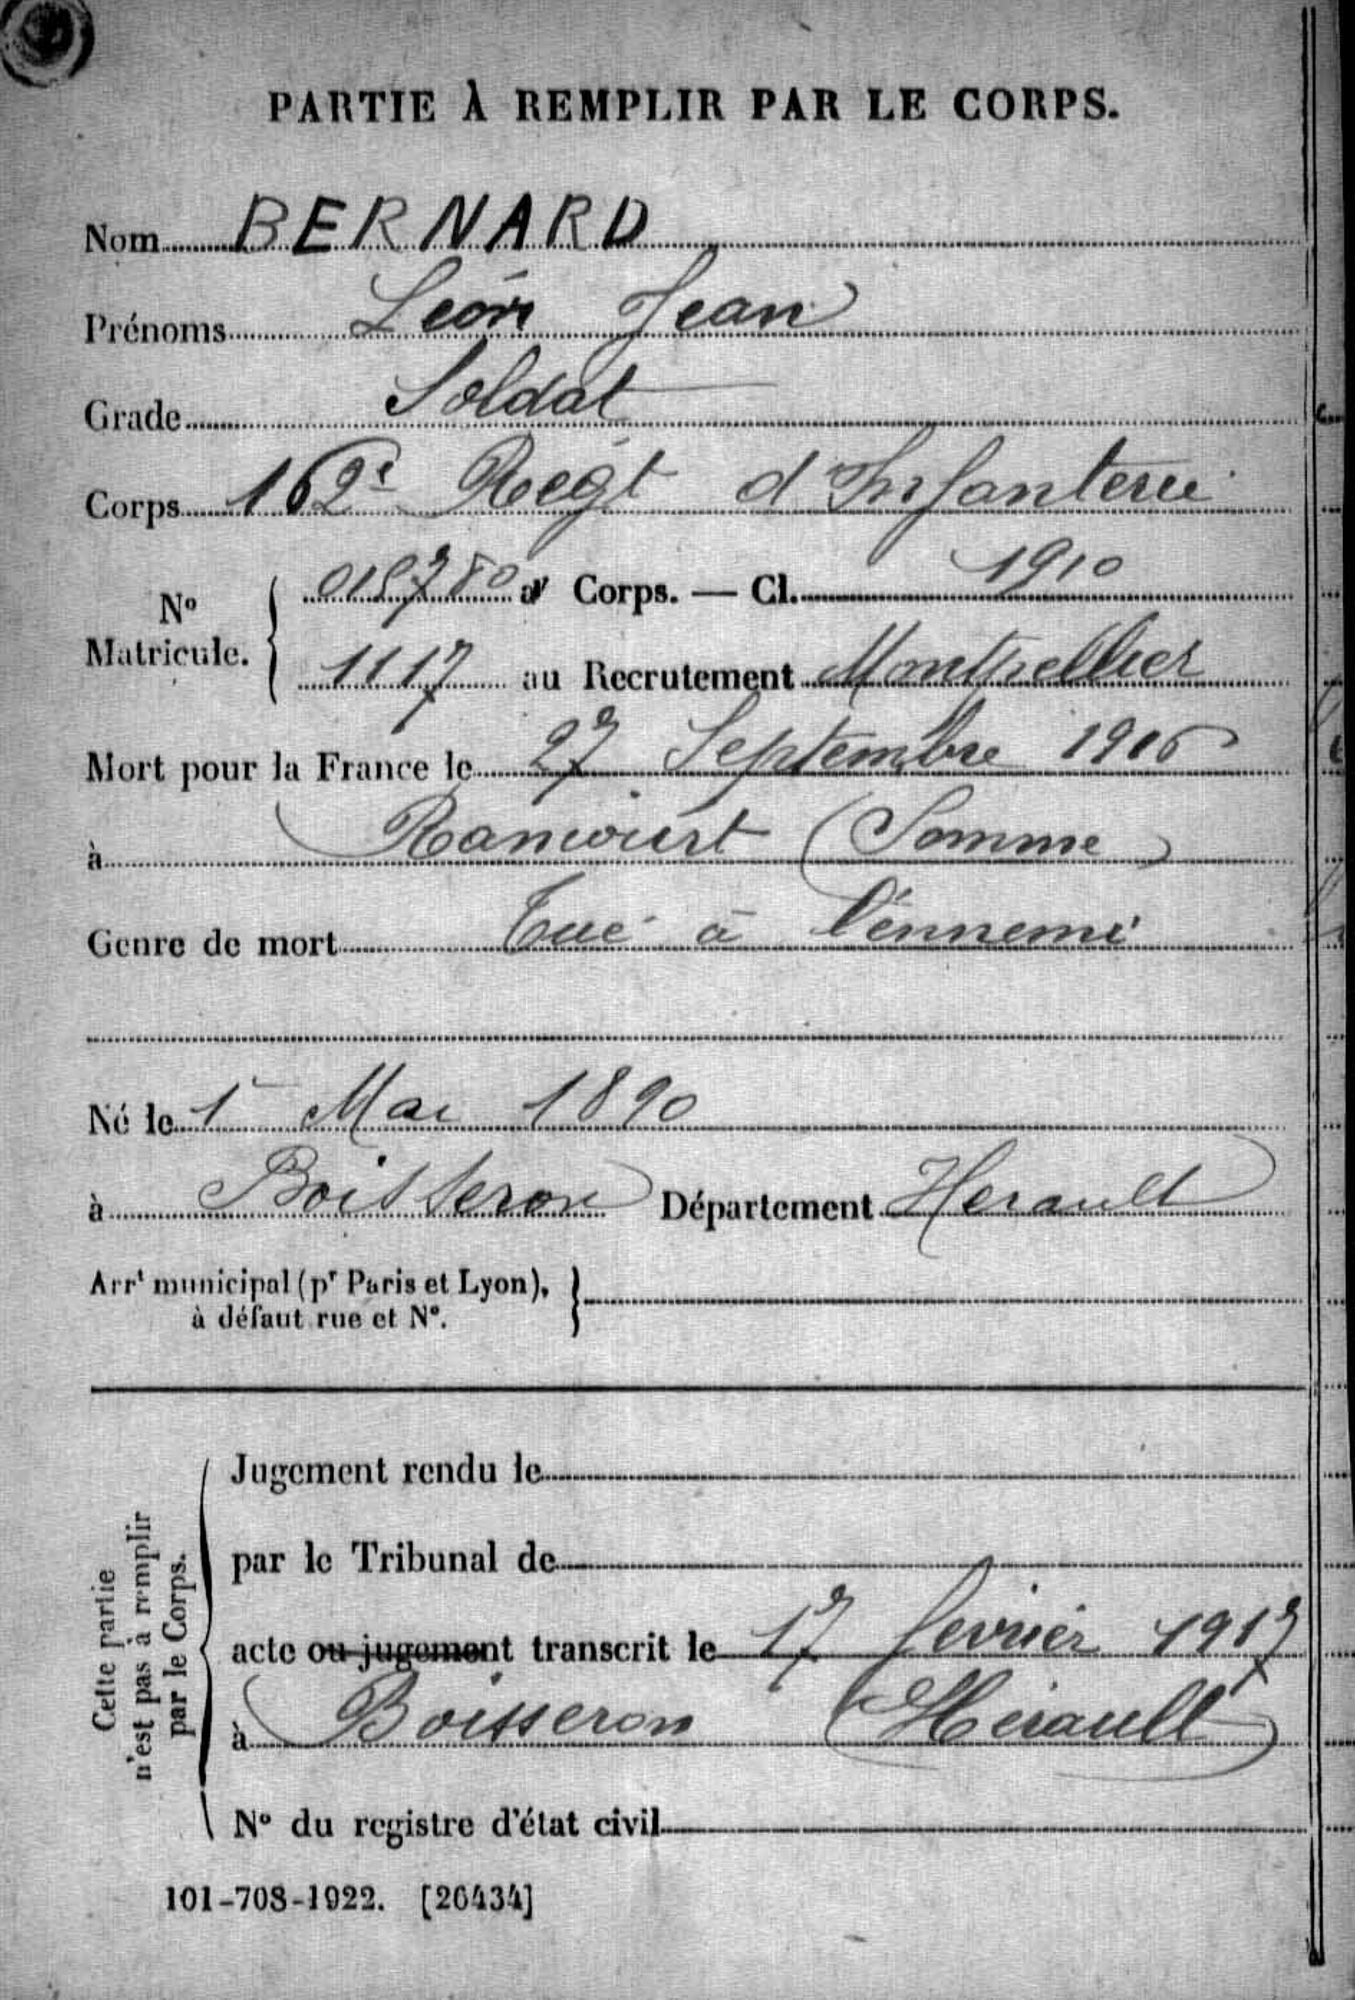 PARTIE À REMPLIR PAR LE CORPS.
Nom BERNARD
Prénoms Léon Jean
Grade Soldat
Corps 162e Régt d'Infanterie
No Matricule. au Corps. — Cl. 1910
1117 au Recrutement Montpellier
Mort pour la France le 27 Septembre 1916
à Rancourt (Somme)
Genre de mort Tué à l'ennemi
Né le 1er Mai 1890
à Boisseron Département Herault
Arrt municipal (pr Paris et Lyon),
à défaut rue et No.
Cette partie
n'est pas à remplir
par le Corps.
Jugement rendu le
par le Tribunal de
acte ou jugement transcrit le 17 février 1917
à Boisseron (Hérault)
No du registre d'état civil
101-708-1922. [26434]